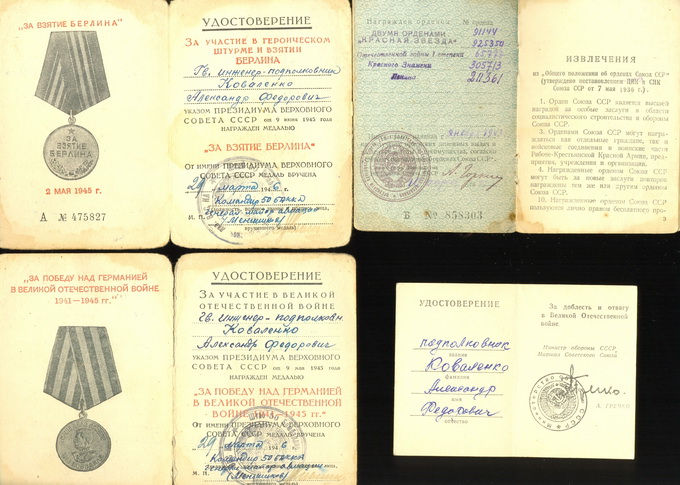 „ЗА ВЗЯТИЕ БЕРЛИНА"
ЗА
ВЗЯТИЕ
БЕРЛИНА
2 МАЯ 1945 г.
А № 475827
УДОСТОВЕРЕНИЕ
ЗА УЧАСТИЕ В ГЕРОИЧЕСКОМ
ШТУРМЕ И ВЗЯТИИ
БЕРЛИНА
Гв. инженер-подполковник
Коваленко
Александр Федорович
УКАЗОМ ПРЕЗИДИУМА ВЕРХОВНОГО
СОВЕТА СССР от 9 июня 1945 года
НАГРАЖДЕН МЕДАЛЬЮ
„ЗА ВЗЯТИЕ БЕРЛИНА"
От имени ПРЕЗИДИУМА ВЕРХОВНОГО
СОВЕТА СССР МЕДАЛЬ ВРУЧЕНА
29 марта 1946
Командир 50
генерал-майор авиации
(Меншиков)
Награжден орденом № ордена
ДВУМЯ ОРДЕНАМИ
"КРАСНАЯ ЗВЕЗДА"
925350
Отечественной войны I степени
Красного Знамени 305713
Ленина
Б № 858303
ИЗВЛЕЧЕНИЯ
из „Общего положения об орденах Союза ССР"
(утверждено постановлением ЦИК и СНК
Союза ССР от 7 мая 1936 г.).
1. Орден Союза ССР является высшей
наградой за особые заслуги в области
социалистического строительства и обороны
Союза ССР.
3. Орденами Союза ССР могут награ-
ждаться как отдельные граждане, так и
войсковые соединения и воинские части
Рабоче-Крестьянской Красной Армии, пред-
приятия, учреждения и организации.
4. Награжденные орденом Союза ССР
могут быть за новые заслуги повторно
награждены тем же или другим орденом
Союза ССР.
10. Награжденные орденом Союза ССР
пользуются лично правом бесплатного про-
„ЗА ПОБЕДУ НАД ГЕРМАНИЕЙ
В ВЕЛИКОЙ ОТЕЧЕСТВЕННОЙ ВОЙНЕ
1941—1945 гг."
УДОСТОВЕРЕНИЕ
ЗА УЧАСТИЕ В ВЕЛИКОЙ
ОТЕЧЕСТВЕННОЙ ВОЙНЕ
Гв. инженер-подполковн
Коваленко
Александр Федорович
УКАЗОМ ПРЕЗИДИУМА ВЕРХОВНОГО
СОВЕТА СССР от 9 мая 1945 года
НАГРАЖДЕН МЕДАЛЬЮ
„ЗА ПОБЕДУ НАД ГЕРМАНИЕЙ
В ВЕЛИКОЙ ОТЕЧЕСТВЕННОЙ
ВОЙНЕ 1941—1945 гг."
От имени ПРЕЗИДИУМА ВЕРХОВНОГО
СОВЕТА СССР МЕДАЛЬ ВРУЧЕНА
29 марта 1946
Командир 50
генерал-майор авиации
(Меншиков)
УДОСТОВЕРЕНИЕ
подполковник
звание
Коваленко
фамилия
Александр
имя
отчество
За доблесть и отвагу
в Великой Отечественной
войне
Министр обороны СССР
Маршал Советского Союза
А. ГРЕЧКО